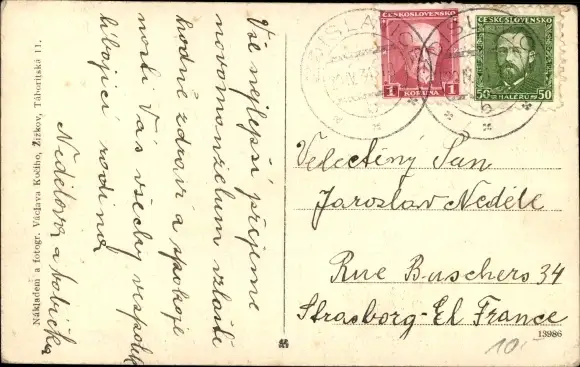 Vše nejlepší přejeme
novomanželum vzlášti
hodně zdraví a spokoje
nosti Vás všechy vespolek
líbající rodina
Nedělova a
Nákladem a fotogr. Václava Kočího, Žižkov, Táboritská 11.
ČESKOSLOVENSKO
1 KORUNA 1
ČESKOSLOVENSKO
50 HALÉŘŮ 50
Velectěný Pan
Jaroslav Neděle
Rue Buschers 34
Strasborg-El France
13986
10.-